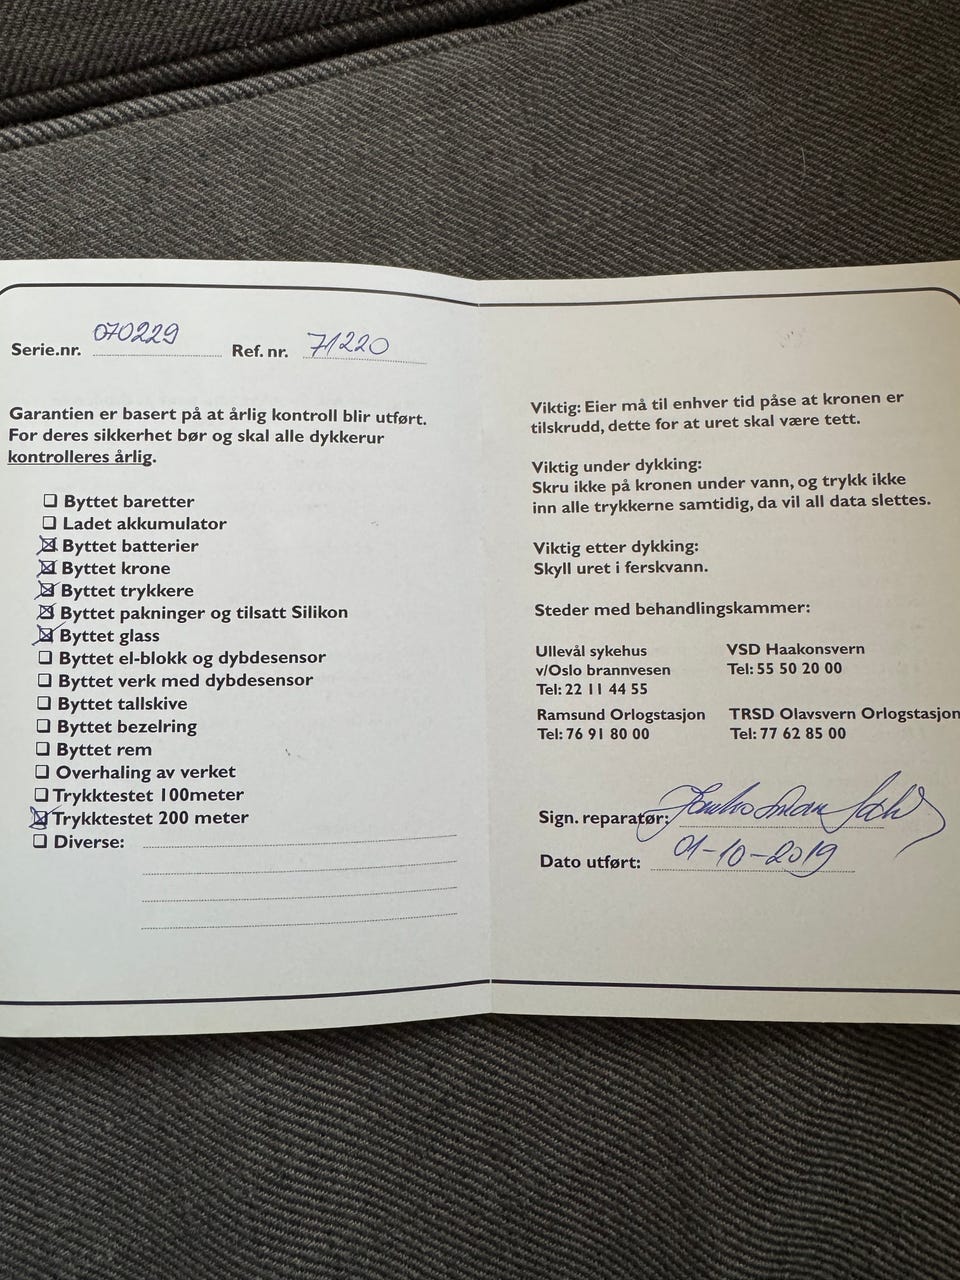 Serie.nr. 070229 Ref. nr. 71220
Garantien er basert på at årlig kontroll blir utført.
For deres sikkerhet bør og skal alle dykkerur
kontrolleres årlig.
☐ Byttet baretter
☐ Ladet akkumulator
☒ Byttet batterier
☒ Byttet krone
☒ Byttet trykkere
☒ Byttet pakninger og tilsatt Silikon
☒ Byttet glass
☐ Byttet el-blokk og dybdesensor
☐ Byttet verk med dybdesensor
☐ Byttet tallskive
☐ Byttet bezelring
☐ Byttet rem
☐ Overhaling av verket
☐ Trykktestet 100meter
☒ Trykktestet 200 meter
☐ Diverse:
Viktig: Eier må til enhver tid påse at kronen er
tilskrudd, dette for at uret skal være tett.
Viktig under dykking:
Skru ikke på kronen under vann, og trykk ikke
inn alle trykkerne samtidig, da vil all data slettes.
Viktig etter dykking:
Skyll uret i ferskvann.
Steder med behandlingskammer:
Ullevål sykehus
v/Oslo brannvesen
Tel: 22 11 44 55
VSD Haakonsvern
Tel: 55 50 20 00
Ramsund Orlogstasjon
Tel: 76 91 80 00
TRSD Olavsvern Orlogstasjon
Tel: 77 62 85 00
Sign. reparatør:
Dato utført: 01-10-2019